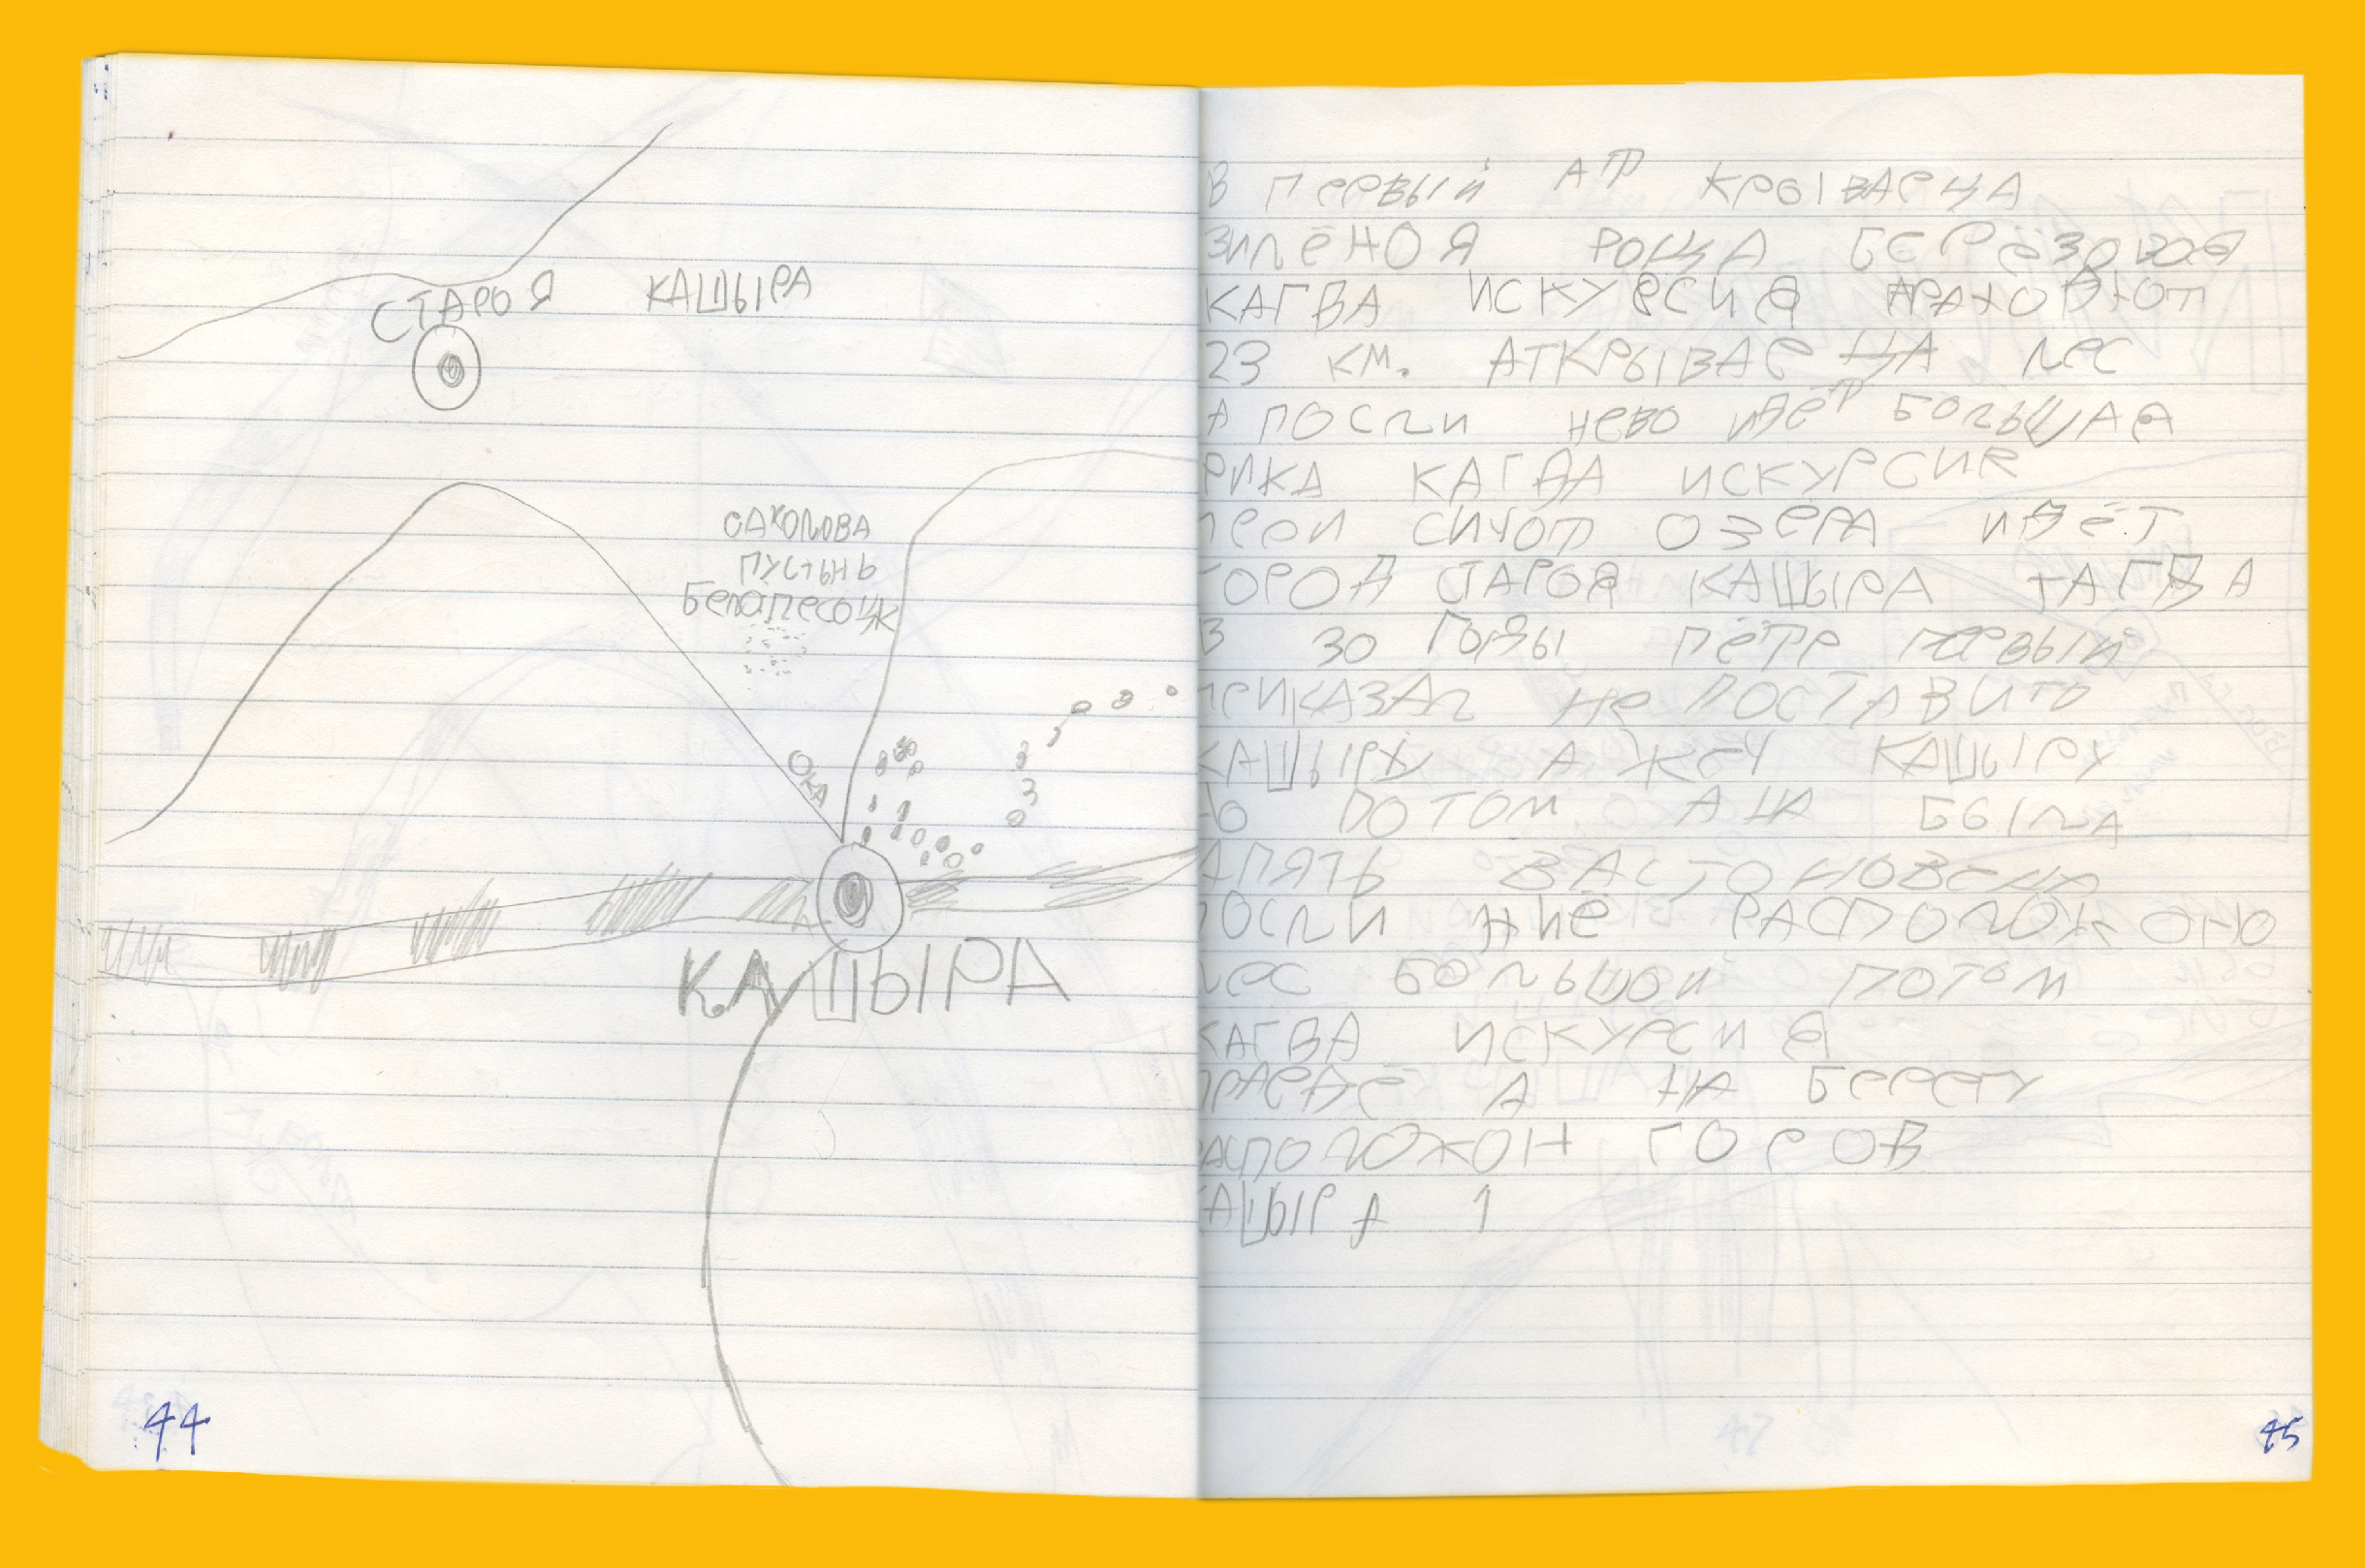 СТАРОЯ КАШЫРА
САХОЛОВА
ПУСТЫНЬ
БелаПесоцк
ОКА
КАШЫРА
44
В Первый АТ КРЫВАеЦА
ЗИЛЁНОЯ РОЩА БеРеЗОВАЯ
КАГДА ИСКУРСИЯ
23 КМ. АТКРЫВАеЦА Лес
А ПОСЛИ НеВО ИДёТ БОЛЬШАЯ
РИКА КАГДА ИСКУРСИЯ
СИЧОТ ОЗеРА ИДёТ
ГОРОД СТАРОЯ КАШЫРА ТАГДА
В 30 ГОДЫ ПёТР ПеРВЫЙ
ПРИКАЗАЛ Не ПОСТАВИТЬ
КАШЫРУ А ЖеЧ КАШЫРУ
НО ПОТОМ АНА БЫЛА
АПЯТЬ ВАСТОНОВЕНА
ПОСЛИ НИЁ РАСПОЛОЖОНО
Лес БОЛЬШОЙ ПОТОМ
КАГДА ИСКУРСИЯ
А НА БеРеГУ
РАСПОЛОЖОН ГОРОД
КАШЫРА 1
45